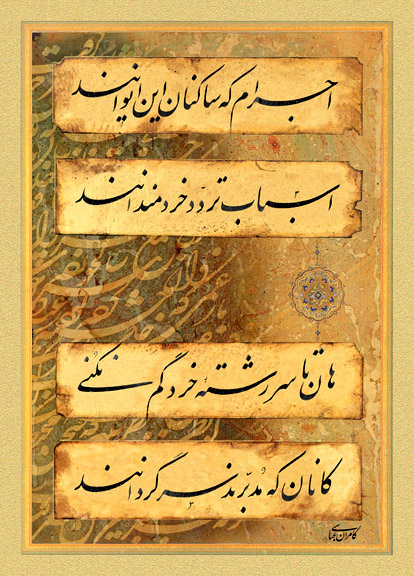 اجرام که ساکنان این ایوانند
اسباب تردد خردمندانند
هان تا سر رشته خرد گم نکنی
کانان که مدبرند سرگردانند
کامران عباسی